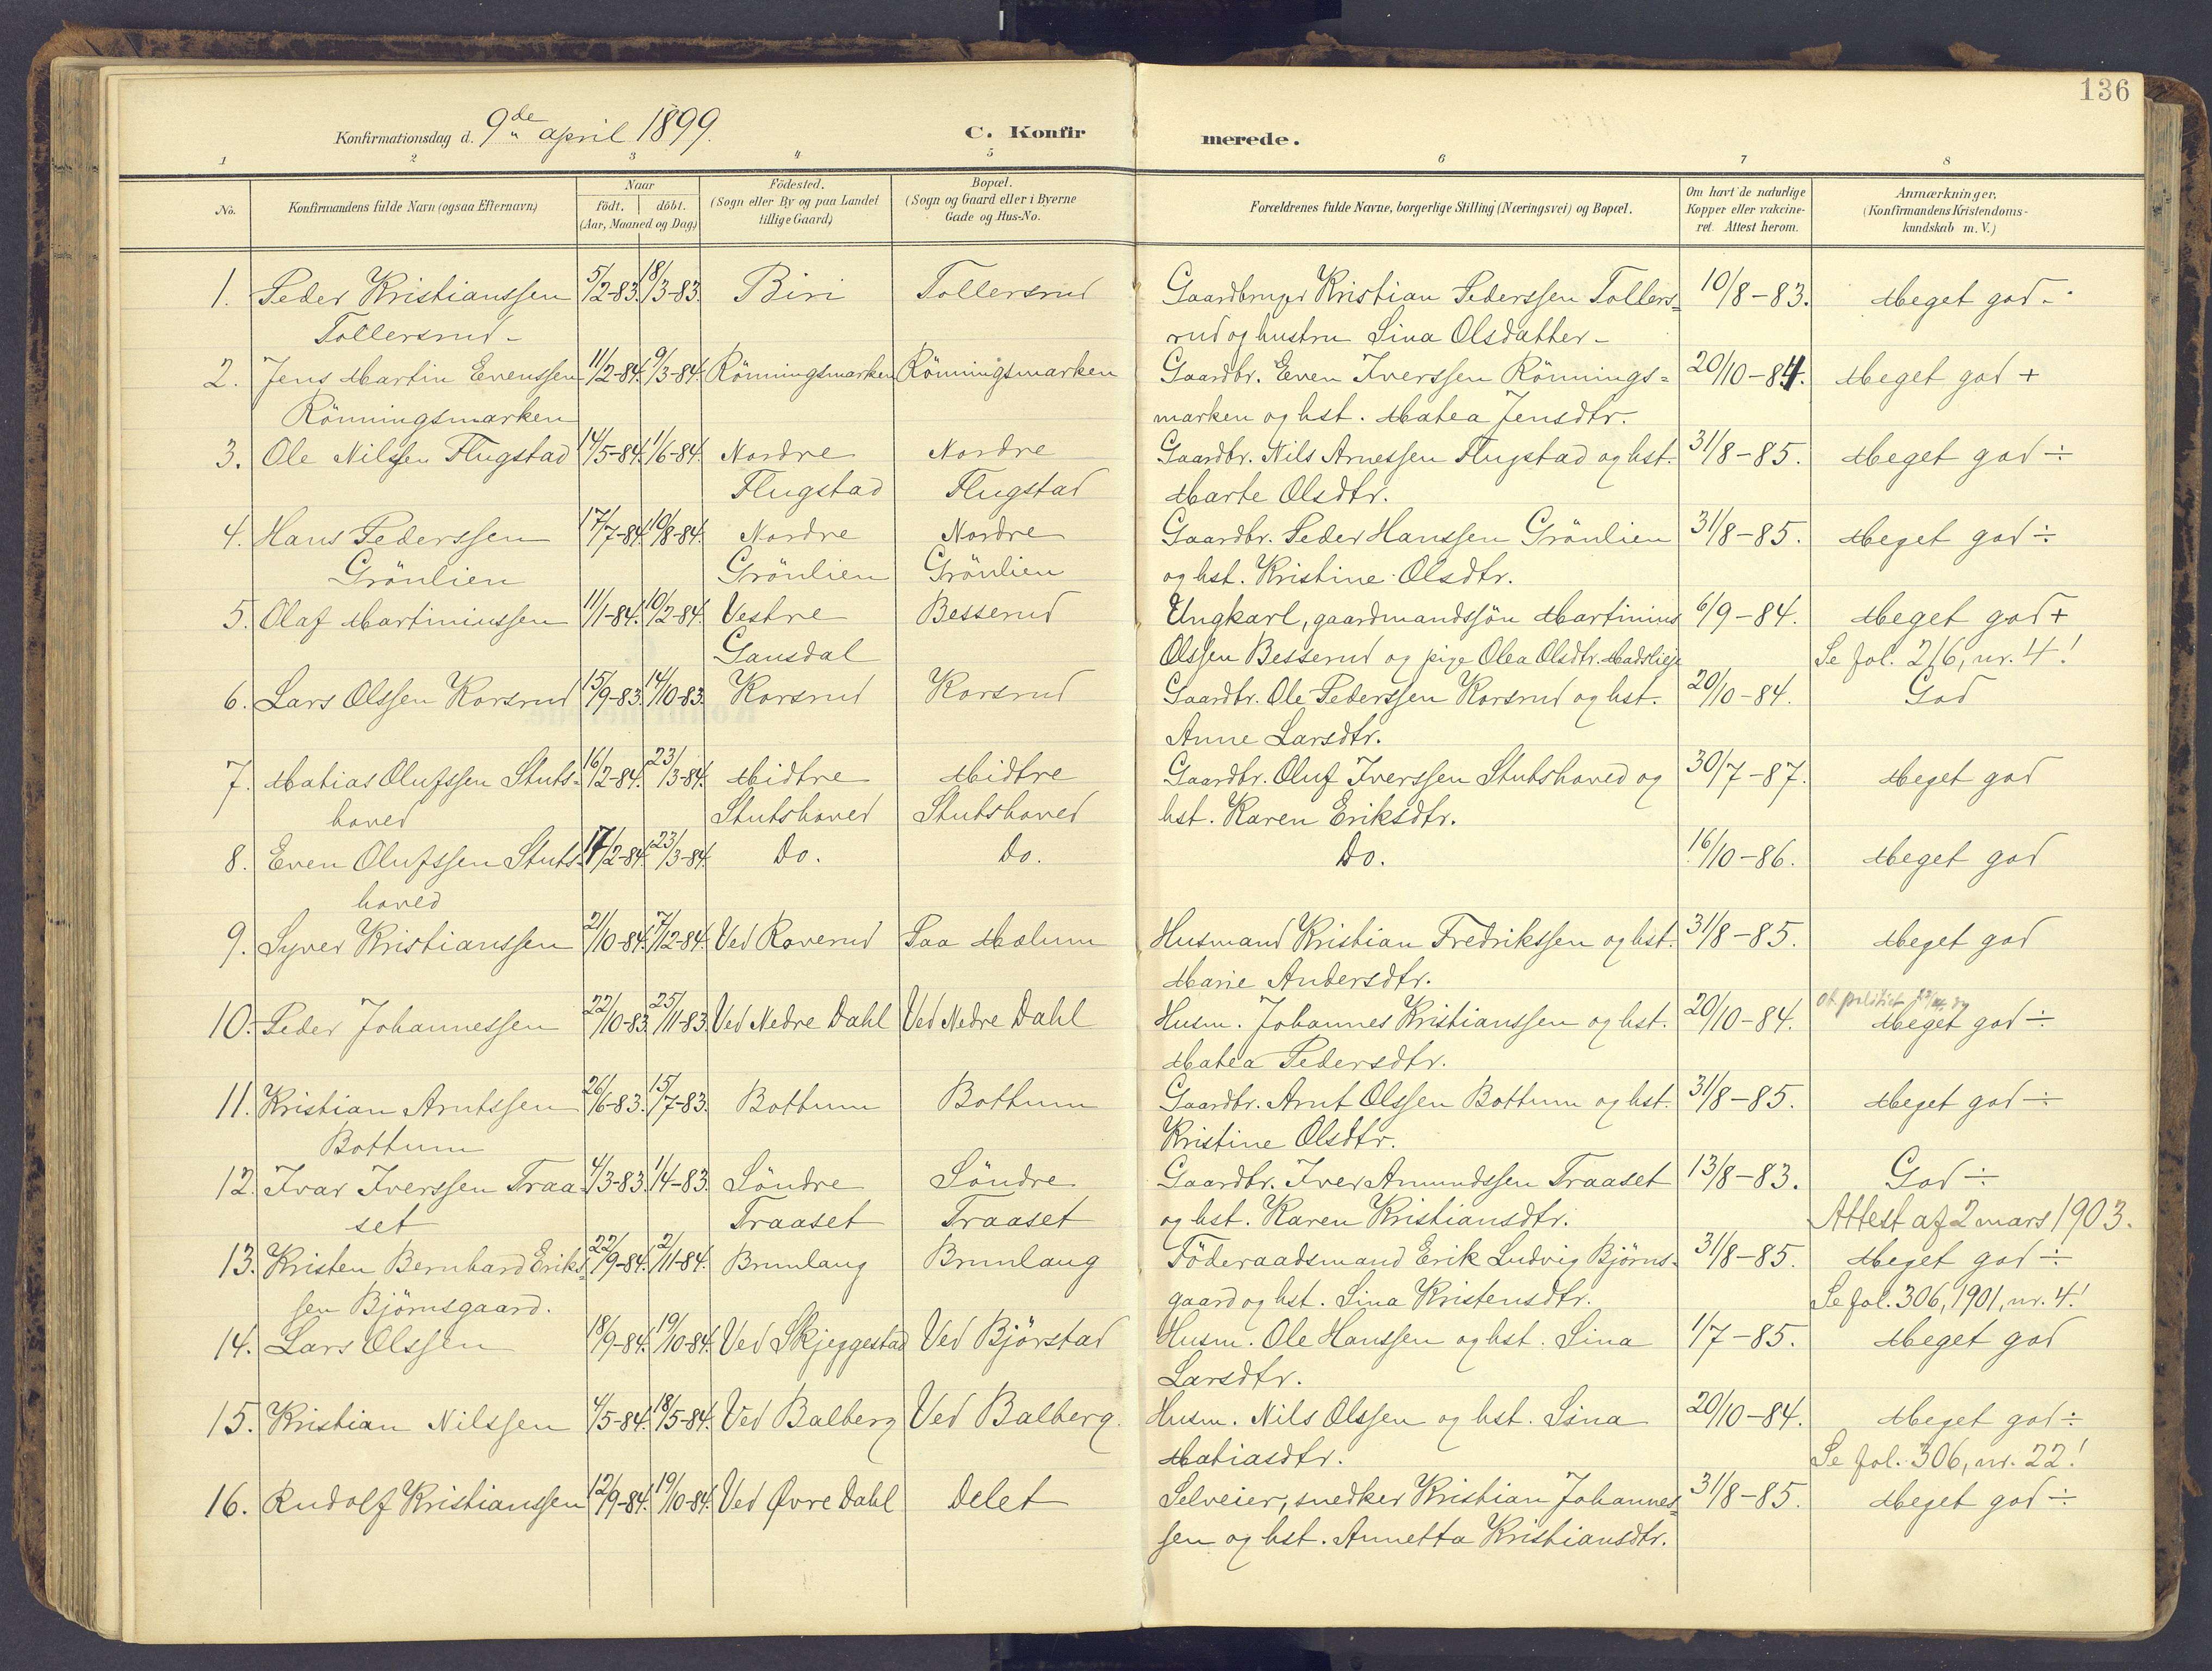 136
Konfirmationsdag d. 9de april 1899.
C. Konfirmerede.
1 2 3 4 5 6 7 8
No. Konfirmandens fulde Navn (ogsaa Efternavn) Naar födt. döbt. (Aar, Maaned og Dag) Födested. (Sogn eller By og paa Landet tillige Gaard) Bopæl. (Sogn og Gaard eller i Byerne Gade og Hus-No. Forældrenes fulde Navne, borgerlige Stilling (Næringsvei) og Bopæl. Om havt de naturlige Kopper eller vakcineret. Attest herom. Anmærkninger, (Konfirmandens Kristendomskundskab m. V.)
1. Peder Kristianssen 5/2-83. 18/3-83. Biri Tollersrud Gaardbruger Kristian Pederssen Tollers= 10/8-83. Meget god -
Tollersrud - rud og hustru Lina Olsdatter -
2. Jens Martin Evenssen 11/2-84. 9/3-84. Rönningsmarken Rönningsmarken Gaardbr. Even Iverssen Rönnings= 20/10-84. Meget god +
Rönningsmarken marken og hst. Matea Jensdtr.
3. Ole Nilssen Flugstad 14/5-84. 1/6-84. Nordre Nordre Gaardbr. Nils Arnessen Flugstad og hst. 31/8-85. Meget god ÷
Flugstad Flugstad Marte Olsdtr.
4. Hans Pederssen 17/7-84. 10/8-84. Nordre Nordre Gaardbr. Peder Hanssen Grönlien 31/8-85. Meget god ÷
Grönlien Grönlien Grönlien og hst. Kristine Olsdtr.
5. Olaf Martiniussen 11/1-84. 10/2-84. Vestre Besserud Ungkarl, gaardmandssön Martinius 6/9-84. Meget god +
Gausdal Olssen Besserud og pige Olea Olsdtr. Se fol. 216, nr. 4!
6. Lars Olssen Korsrud 15/9-83. 14/10-83. Korsrud Korsrud Gaardbr. Ole Pederssen Korsrud og hst. 20/10-84. God
Anne Larsdtr.
7. Matias Olufssen Stuts= 16/2-84. 23/3-84. Midtre Midtre Gaardbr. Oluf Iverssen Stutshoved og 30/7-87. Meget god
hoved Stutshoved Stutshoved hst. Karen Eriksdtr.
8. Even Olufssen Stuts= 17/2-84. 23/3-84. Do. Do. Do. 16/10-86. Meget god
hoved
9. Syver Kristianssen 21/10-84. 7/12-84. Ved Roverud Paa Mælum Husmand Kristian Fredrikssen og hst. 31/8-85. Meget god
Marie Andersdtr.
10. Peder Johannessen 22/10-83. 25/11-83. Ved Nedre Dahl Ved Nedre Dahl Husm. Johannes Kristianssen og hst. 20/10-84. Meget god ÷
Matea Pedersdtr.
11. Kristian Arntssen 26/6-83. 15/7-83. Bottum Bottum Gaardbr. Arnt Olssen Bottum og hst. 31/8-85. Meget god ÷
Bottum Kristine Olsdtr.
12. Ivar Iverssen Traa 4/3-83. 1/4-83. Söndre Söndre Gaardbr. Iver Amundssen Traaset 13/8-83. God ÷
set Traaset Traaset og hst. Karen Kristiansdtr. Attest af 2 mars 1903.
13. Kristen Bernhard Eriks= 22/9-84. 2/11-84. Brunlaug Brunlaug Föderaadsmand Erik Ludvig Björns= 31/8-85. Meget god ÷
sen Björnsgaard. gaard og hst. Lina Kristensdtr. Se fol. 306, 1901, nr. 4!
14. Lars Olssen 18/9-84. 19/10-84. Ved Skjeggestad Ved Björstad Husm. Ole Hanssen og hst. Lina 1/7-85. Meget god
Larsdtr.
15. Kristian Nilssen 4/5-84. 18/5-84. Ved Balberg Ved Balberg. Husm. Nils Olssen og hst. Lina 20/10-84. Meget god ÷
Matiasdtr. Se fol. 306, nr. 22!
16. Rudolf Kristianssen 12/9-84. 19/10-84. Ved Øvre Dahl Delet Selveier, snedker Kristian Johannes= 31/8-85. Meget god ÷
sen og hst. Annetta Kristiansdtr.